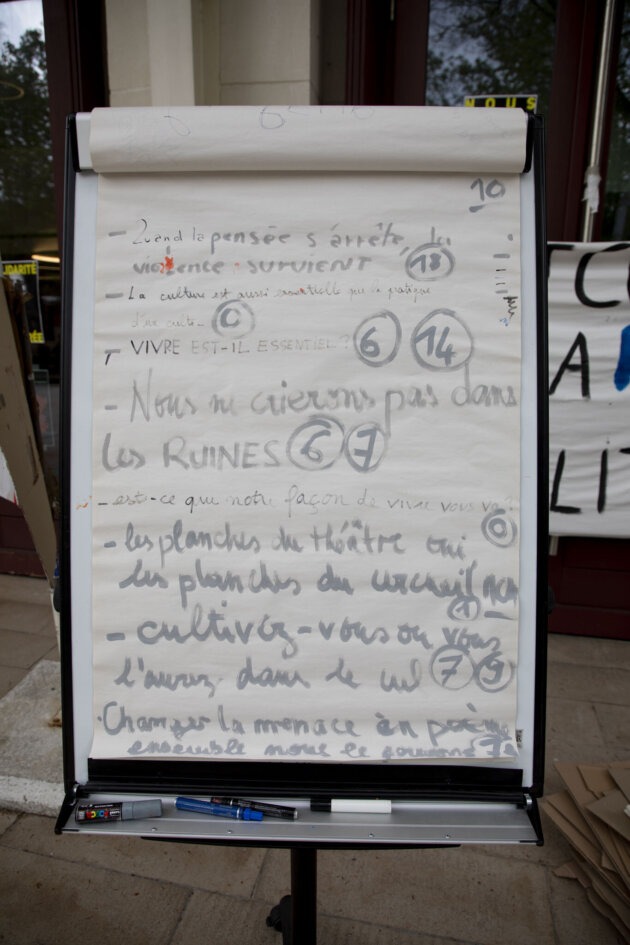 NOUS
10
- Quand la pensée s'arrête, la
violence survient 13
- La culture est aussi essentielle que la pratique
d'un culte 0
- VIVRE EST-IL ESSENTIEL ? 6 14
- Nous ne crierons pas dans
les RUINES 6 7
- est-ce que notre façon de vivre vous va ?
0
- les planches du théâtre oui
les planches du cercueil non
1
- cultivez-vous ou vous
l'aurez dans le cul 7 9
- Changer la menace en poème
ensemble nous le pouvons
IDARITÉ
A
LIT
POSCA